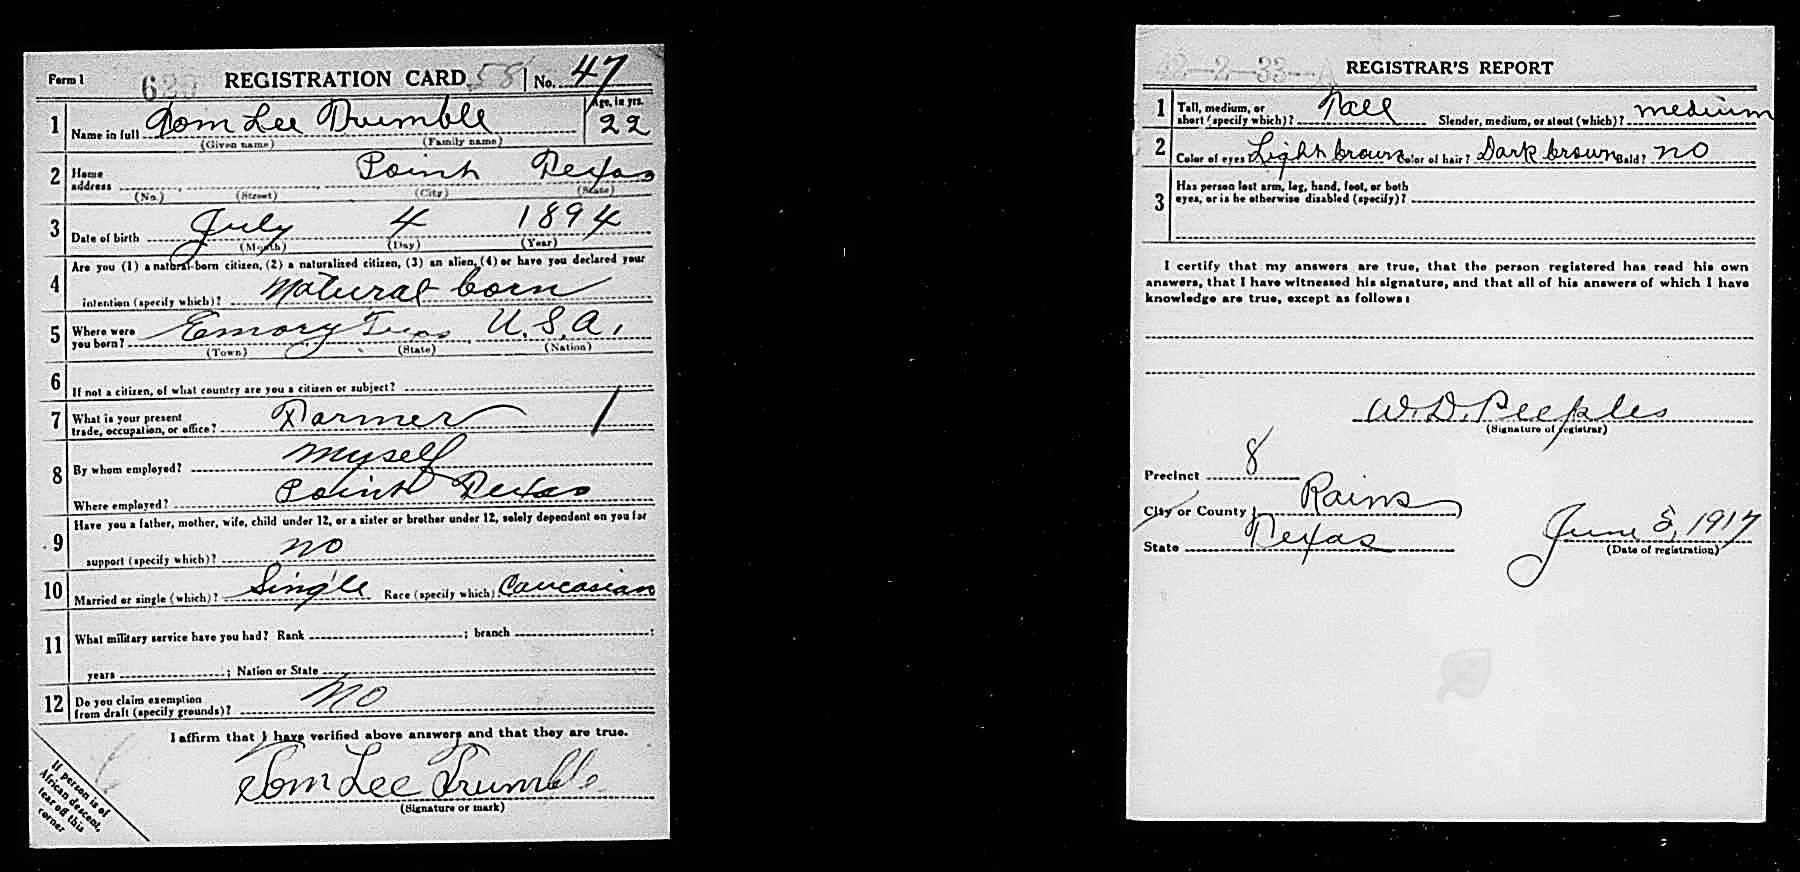 Form 1 REGISTRATION CARD 58 No. 47
1 Name in full Tom Lee Trumble Age, in yrs. 22
(Given name) (Family name)
2 Home address Point Texas
(No.) (Street) (City) (State)
3 Date of birth July 4 1894
(Month) (Day) (Year)
4 Are you (1) a natural-born citizen, (2) a naturalized citizen, (3) an alien, (4) or have you declared your
intention (specify which)? Natural born
5 Where were you born? Emory Texas U.S.A.
(Town) (State) (Nation)
6 If not a citizen, of what country are you a citizen or subject?
7 What is your present trade, occupation, or office? Farmer
8 By whom employed? Myself
Where employed? Point Texas
9 Have you a father, mother, wife, child under 12, or a sister or brother under 12, solely dependent on you for
support (specify which)? no
10 Married or single (which)? Single Race (specify which) Caucasian
11 What military service have you had? Rank ; branch ;
years ; Nation or State
12 Do you claim exemption from draft (specify grounds)? No
I affirm that I have verified above answers and that they are true.
Tom Lee Trumble
(Signature or mark)
If person is of
African descent,
tear off this
corner
42-2-33-A REGISTRAR'S REPORT
1 Tall, medium, or short (specify which)? Tall Slender, medium, or stout (which)? medium
2 Color of eyes Light brown Color of hair? Dark brown Bald? no
3 Has person lost arm, leg, hand, foot, or both
eyes, or is he otherwise disabled (specify)?
I certify that my answers are true, that the person registered has read his own
answers, that I have witnessed his signature, and that all of his answers of which I have
knowledge are true, except as follows:
W. D. Peeples
(Signature of registrar)
Precinct 8
City or County Rains
State Texas
June 5, 1917
(Date of registration)